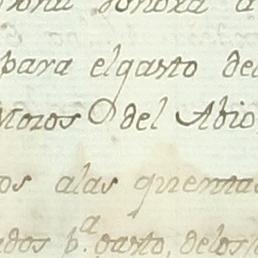 para el gasto de
Moros del Abio
os alas quentas
ados p.ª gasto, delos